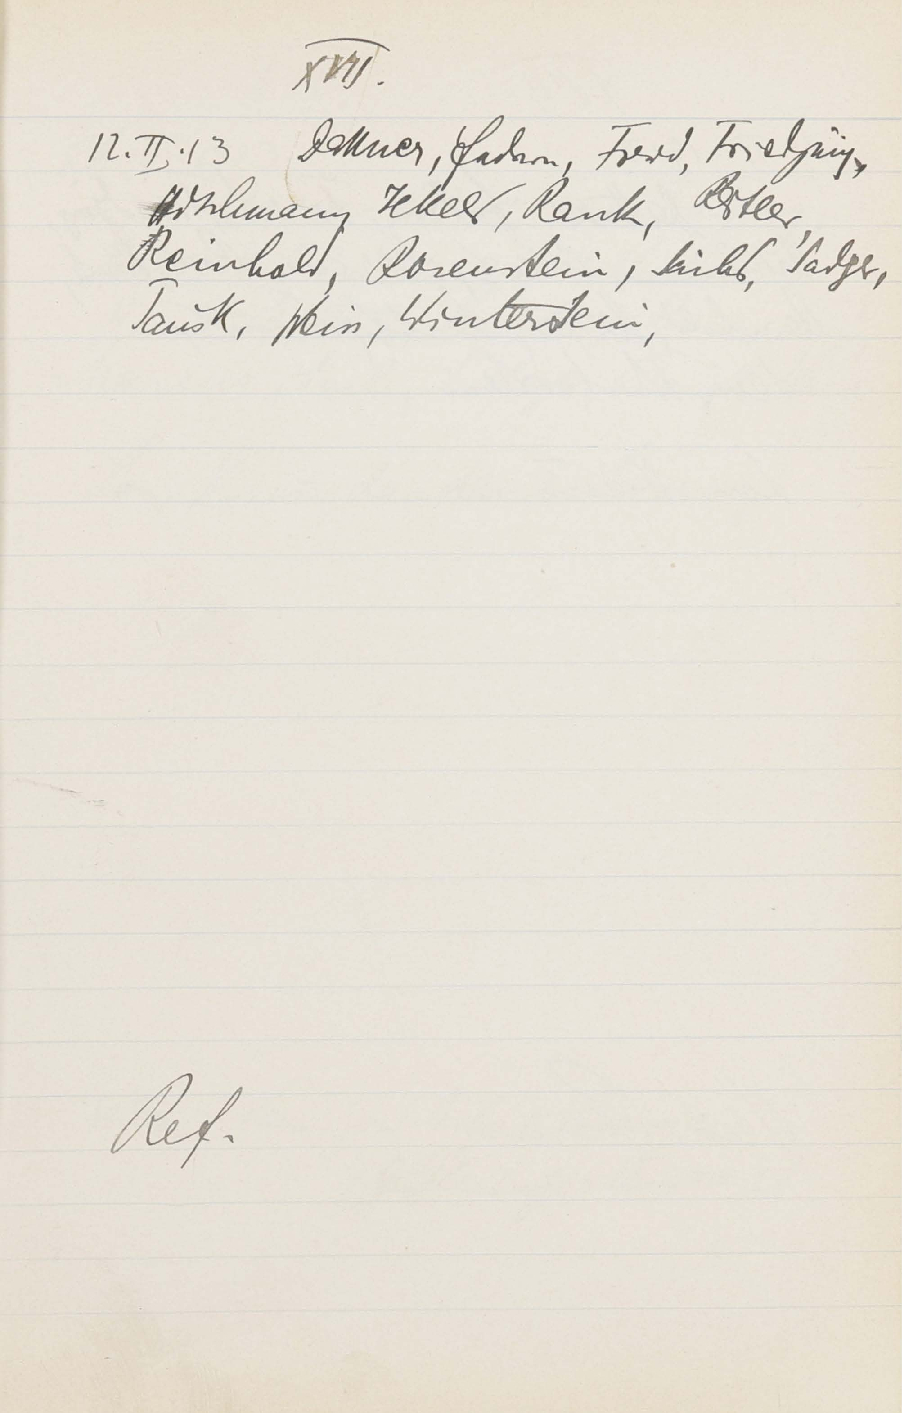 XVII.
12.II.13 Dattner, Federn, Freud, Friedjung,
Hitschmann, Jekels, Rank, Reitler,
Reinhold, Rosenstein, Sachs, Sadger,
Tausk, Weiss, Winterstein,
Ref.